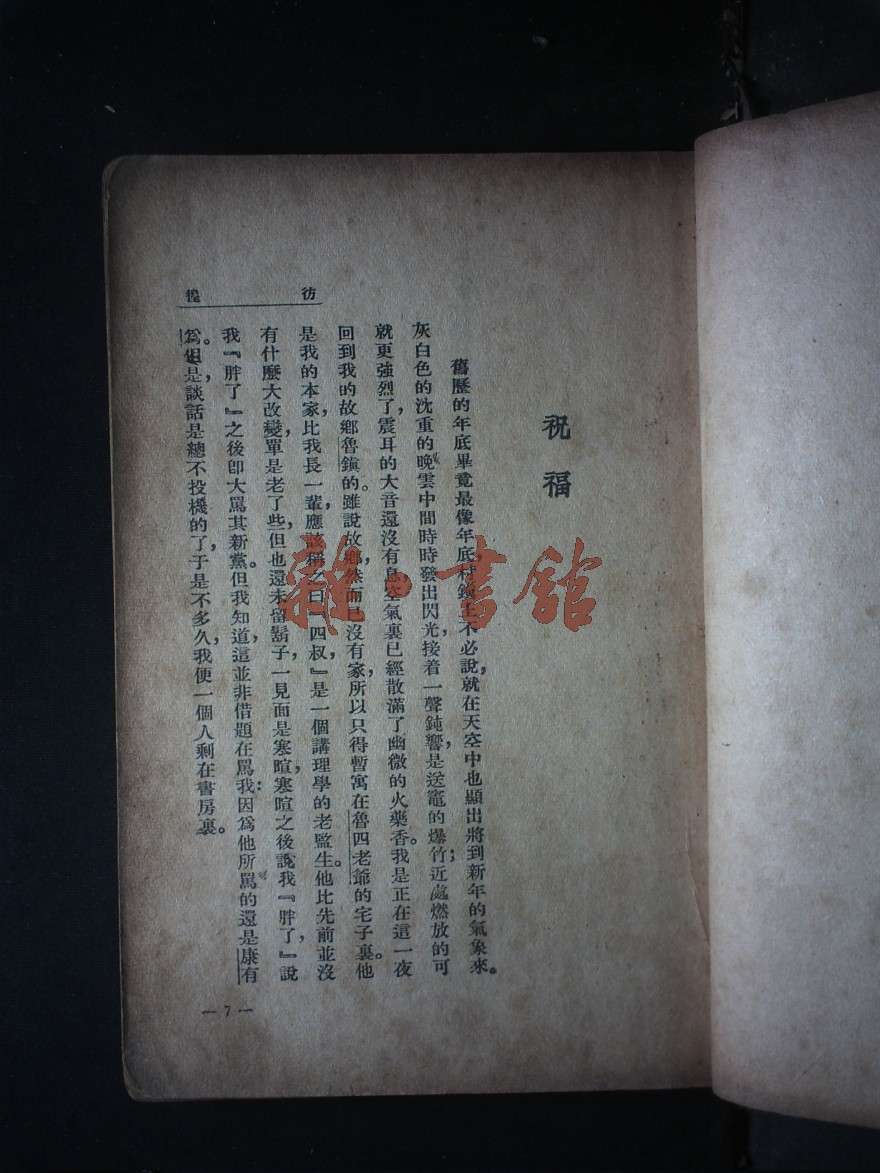 彷徨
祝福
舊歷的年底畢竟最像年底，村鎮上不必說，就在天空中也顯出將到新年的氣象來。
灰白色的沈重的晚雲中間時時發出閃光，接着一聲鈍響，是送竈的爆竹；近處燃放的可
就更強烈了，震耳的大音還沒有息，空氣裏已經散滿了幽微的火藥香。我是正在這一夜
回到我的故鄉魯鎮的。雖說故鄉，然而已沒有家，所以只得暫寓在魯四老爺的宅子裏。他
是我的本家，比我長一輩，應該稱之曰『四叔』，是一個講理學的老監生。他比先前並沒
有什麼大改變，單是老了些，但也還未留鬍子，一見面是寒暄，寒暄之後說我『胖了』，說
我『胖了』之後卽大罵其新黨。但我知道，這並非借題在罵我：因爲他所罵的還是康有
爲。但是，談話是總不投機的了，于是不多久，我便一個人剩在書房裏。
— 7 —
雜·書館